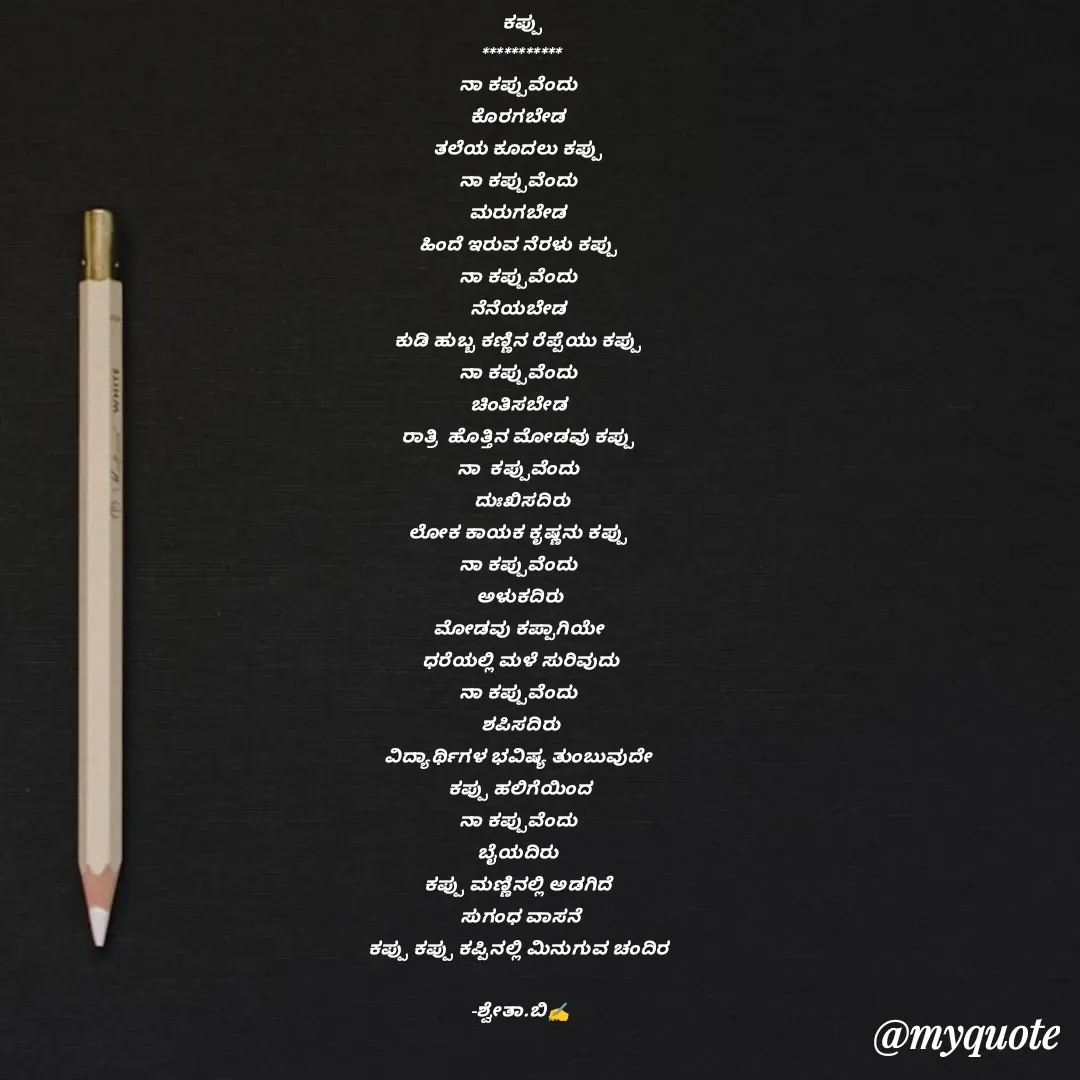 ಕಪ್ಪು
***********
ನಾ ಕಪ್ಪುವೆಂದು
ಕೊರಗಬೇಡ
ತಲೆಯ ಕೂದಲು ಕಪ್ಪು
ನಾ ಕಪ್ಪುವೆಂದು
ಮರುಗಬೇಡ
ಹಿಂದೆ ಇರುವ ನೆರಳು ಕಪ್ಪು
ನಾ ಕಪ್ಪುವೆಂದು
ನೆನೆಯಬೇಡ
ಕುಡಿ ಹುಬ್ಬ ಕಣ್ಣಿನ ರೆಪ್ಪೆಯು ಕಪ್ಪು
ನಾ ಕಪ್ಪುವೆಂದು
ಚಿಂತಿಸಬೇಡ
ರಾತ್ರಿ ಹೊತ್ತಿನ ಮೋಡವು ಕಪ್ಪು
ನಾ ಕಪ್ಪುವೆಂದು
ದುಃಖಿಸದಿರು
ಲೋಕ ಕಾಯಕ ಕೃಷ್ಣನು ಕಪ್ಪು
ನಾ ಕಪ್ಪುವೆಂದು
ಅಳುಕದಿರು
ಮೋಡವು ಕಪ್ಪಾಗಿಯೇ
ಧರೆಯಲ್ಲಿ ಮಳೆ ಸುರಿವುದು
ನಾ ಕಪ್ಪುವೆಂದು
ಶಪಿಸದಿರು
ವಿದ್ಯಾರ್ಥಿಗಳ ಭವಿಷ್ಯ ತುಂಬುವುದೇ
ಕಪ್ಪು ಹಲಿಗೆಯಿಂದ
ನಾ ಕಪ್ಪುವೆಂದು
ಬೈಯದಿರು
ಕಪ್ಪು ಮಣ್ಣಿನಲ್ಲಿ ಅಡಗಿದೆ
ಸುಗಂಧ ವಾಸನೆ
ಕಪ್ಪು ಕಪ್ಪು ಕಪ್ಪಿನಲ್ಲಿ ಮಿನುಗುವ ಚಂದಿರ
-ಶ್ವೇತಾ.ಬಿ✍️
@myquote
WHITE